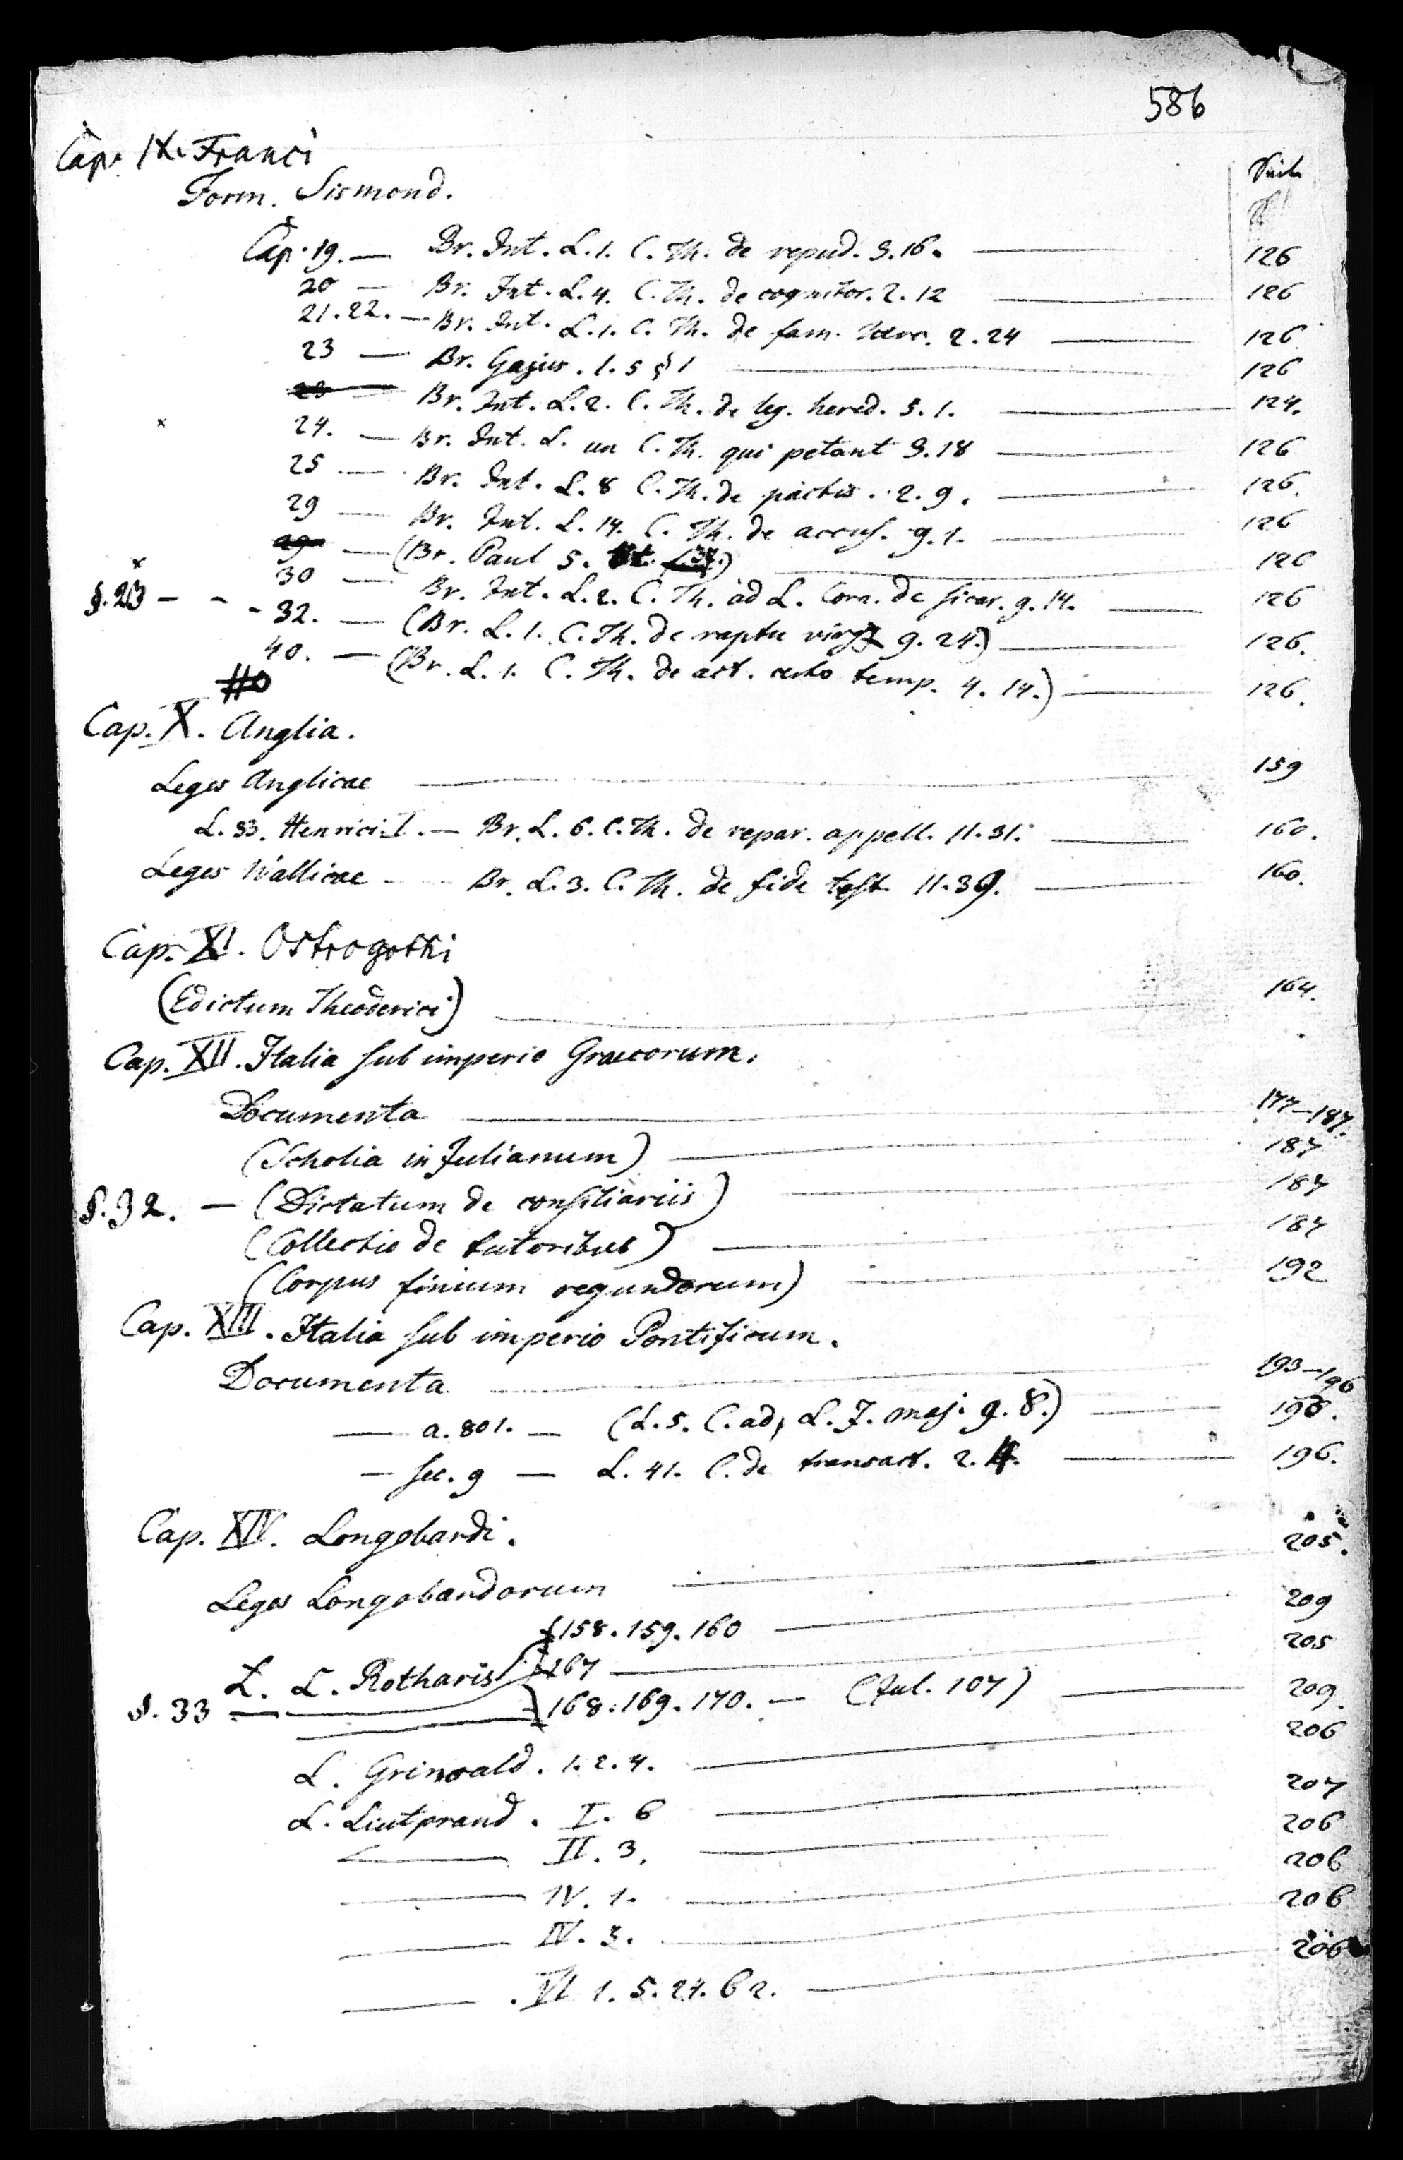 586
Cap. IX. Franci
Seite
Form. Sirmond.
Cap. 19. — Br. Int. L. 1. C. Th. de repud. 3. 16. — 126
20 — Br. Int. L. 4. C. Th. de cognitor. 2. 12 — 126
21. 22. — Br. Int. L. 1. C. Th. de fam. herc. 2. 24 — 126
23 — Br. Gajus. 1. 5 § 1 — 126
23 — Br. Int. L. 2. C. Th. de leg. hered. 5. 1. — 124.
24. — Br. Int. L. un C. Th. qui petant 3. 18 — 126
25 — Br. Int. L. 8 C. Th. de pactis. 2. 9. — 126.
29 — Br. Int. L. 14. C. Th. de accus. 9. 1. — 126
29 — (Br. Paul 5. — 126
30 — Br. Int. L. 2. C. Th. ad L. Corn. de sicar. 9. 14. — 126
§. 23 - - - 32. — (Br. L. 1. C. Th. de raptu virg. 9. 24.) — 126.
40. — (Br. L. 1. C. Th. de act. certo temp. 4. 14.) — 126.
Cap. X. Anglia.
Leges Anglicae — 159
L. 33. Henrici I. — Br. L. 6. C. Th. de repar. appell. 11. 31. — 160.
Leges Wallicae — Br. L. 3. C. Th. de fide test. 11. 39. — 160.
Cap. XI. Ostrogothi
(Edictum Theoderici) — 164.
Cap. XII. Italia sub imperio Graecorum.
Documenta — 177—187.
(Scholia in Julianum) — 187
§. 32. — (Dictatum de consiliariis) — 187
(Collectio de tutoribus) — 187
(Corpus finium regundorum) — 192
Cap. XIII. Italia sub imperio Pontificum.
Documenta — 193—196
— a. 801. — (L. 5. C. ad L. J. maj. 9. 8.) — 196.
— sec. 9 — L. 41. C. de transact. 2. 4. — 196.
Cap. XIV. Longobardi.
Leges Longobardorum — 205.
158. 159. 160 — 209
L. L. Rotharis 167 — 205
§. 33 — 168. 169. 170. — (Jul. 107) — 209.
L. Grimoald. 1. 2. 4. — 206
L. Liutprand. I. 6 — 207
— II. 3. — 206
— IV. 1. — 206
— IV. 3. — 206
— VI 1. 5. 24. 62. — 206